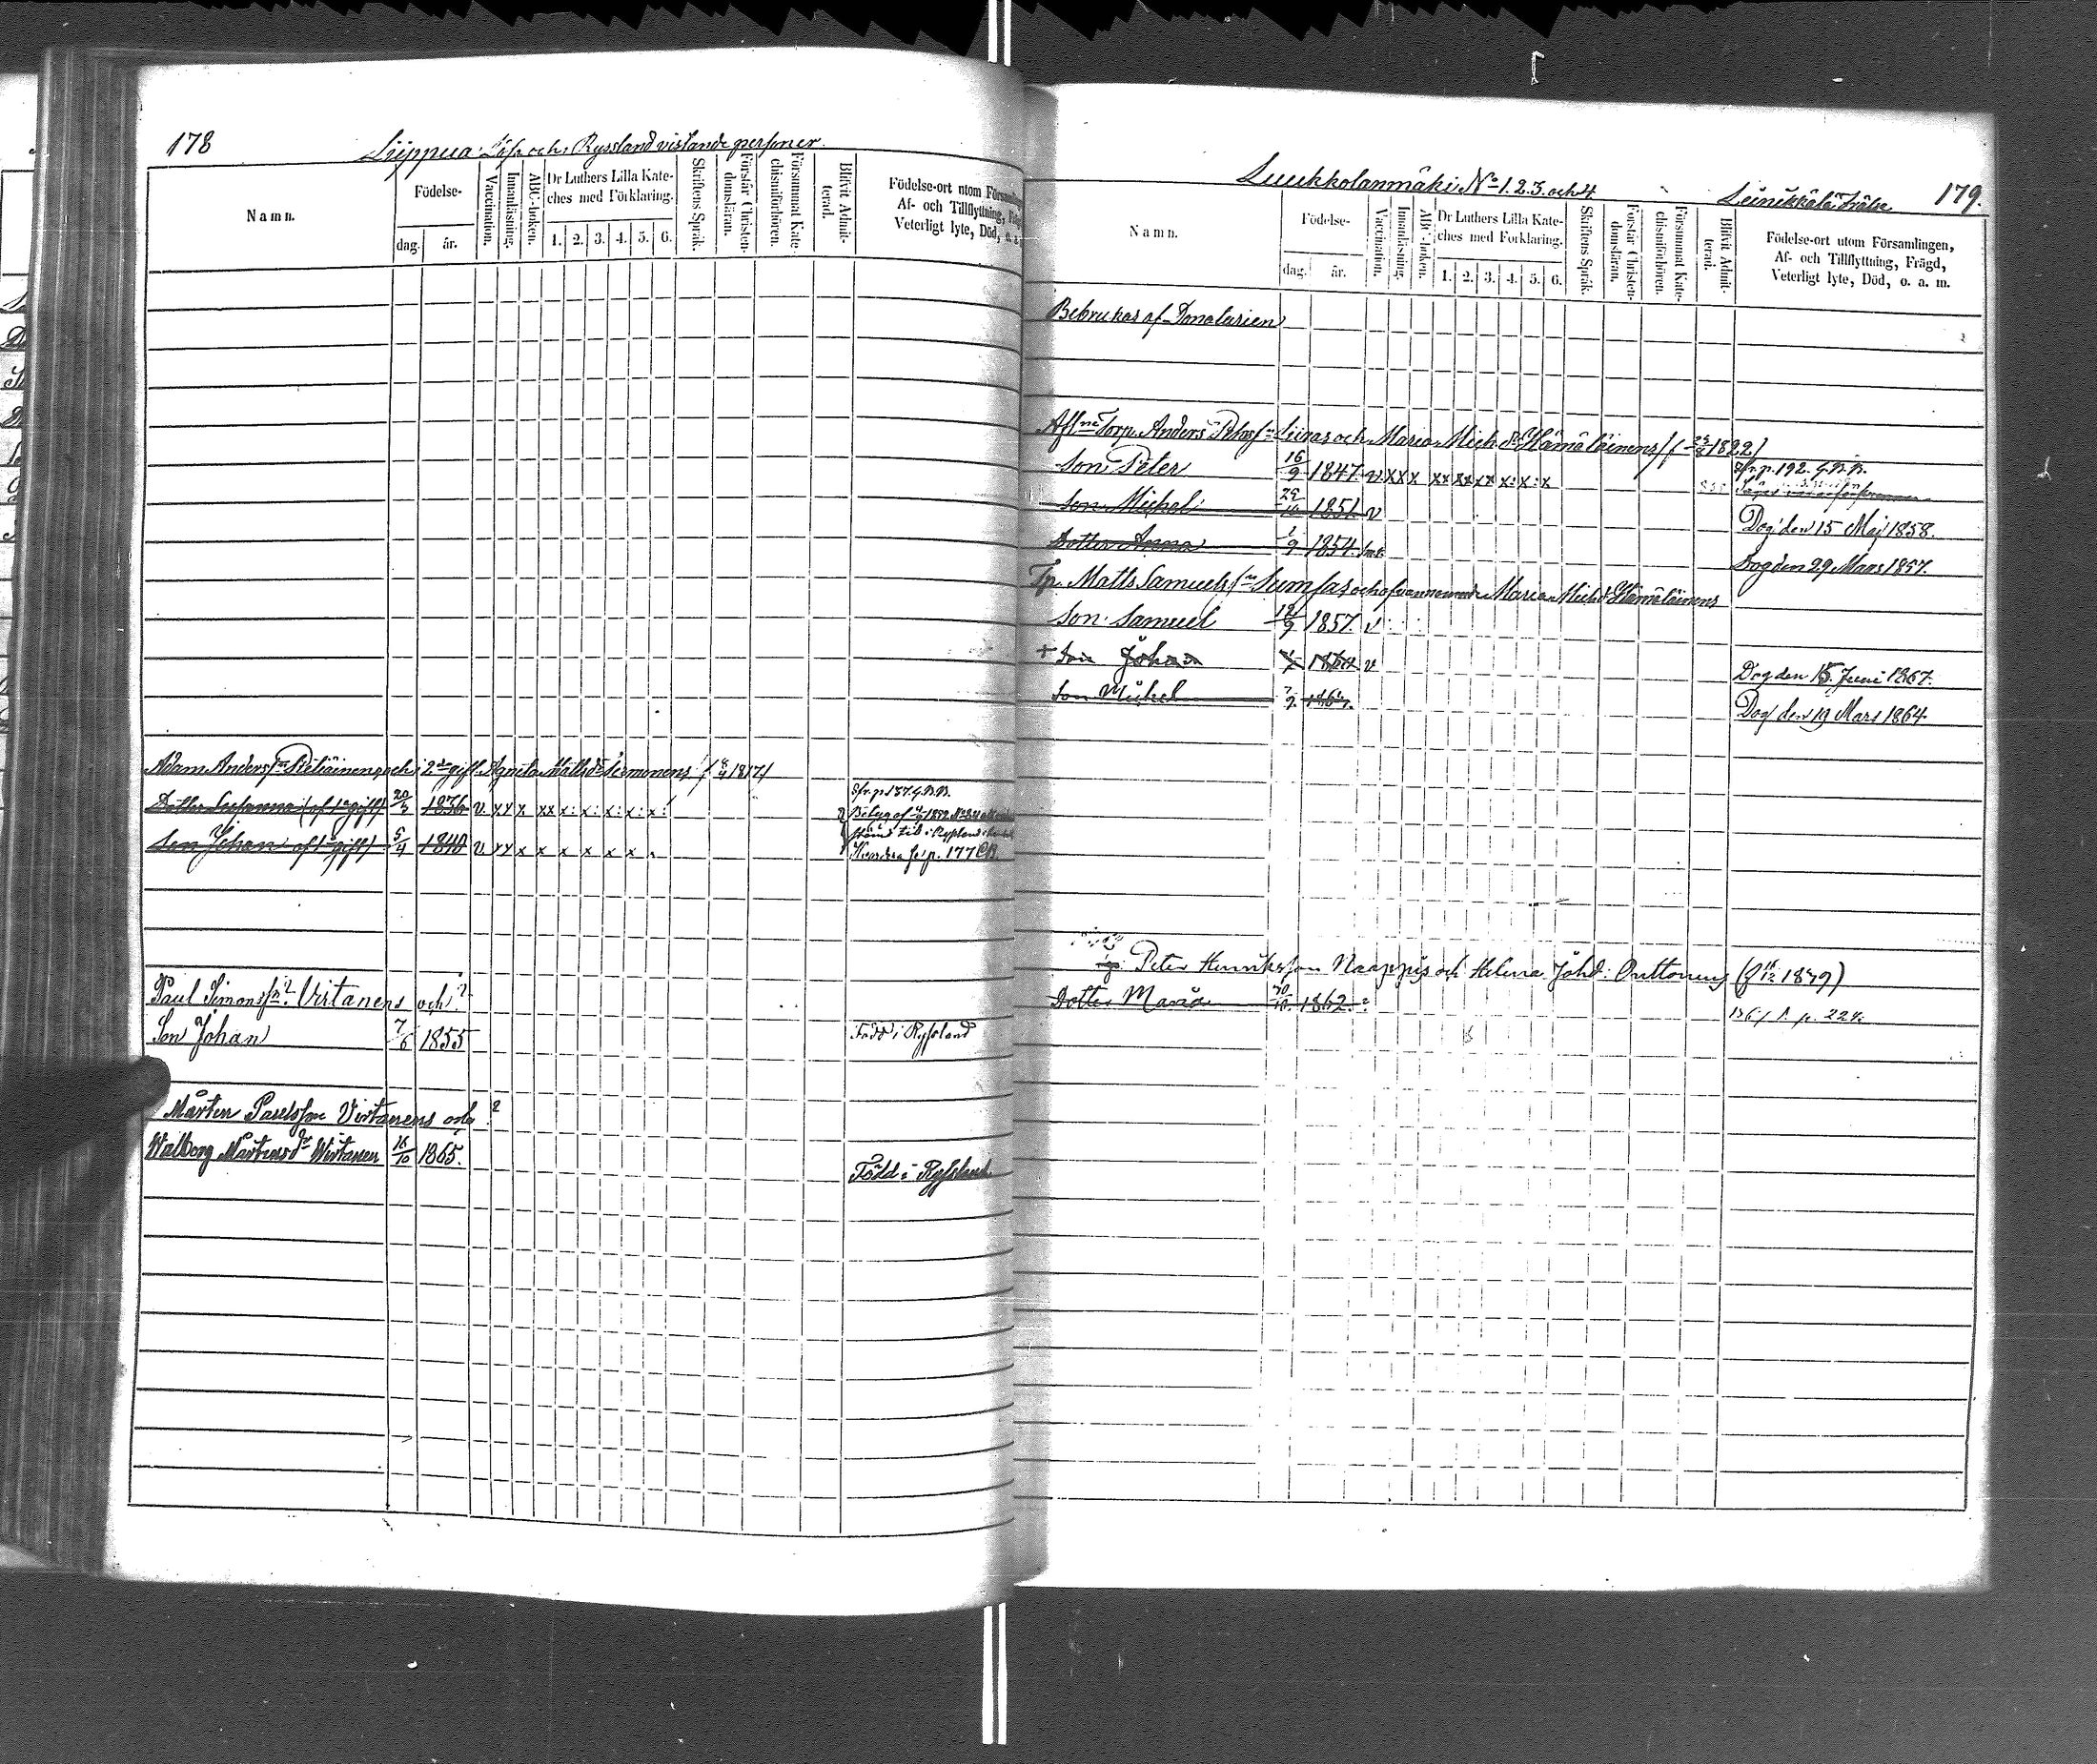 178
Liippua: Löse och i Ryssland vistande personer.
Namn.
Födelse-
dag.
år.
Vaccination.
Innanläsning.
ABC-boken.
Dr Luthers Lilla Kate-
ches med Förklaring.
1. 2. 3. 4. 5. 6.
Skriftens Språk.
Förstår Christen-
domsläran.
Försummat Kate-
chismiförhören.
Blifvit Admit-
terad.
Födelse-ort utom Församling
Af- och Tillflyttning,
Veterligt lyte, Död, o. a.
Adam Anders sn och i 2dra gift. Agneta Matts dr 1817
Sfr. p. 187. G. B. B.
Dotter Susanna (af 1a gift) 20/3 1836 v. xx x xx x: x: x: x: x:
Son Johan af 1a gift) 5/4 1840 v xx x x x x x x
se p. 177 CB.
Paul Simonss:n? Virtanens och?
Son Johan 7/6 1855
Född i Ryssland
Mårten Paulsson Virtanens och ?
Walborg Mårtensdr Wirtanen 16/10 1865.
Född i Ryssland
Luukkolanmäki No 1. 2. 3. och 4.
Leinikkälä Frälse
179.
Namn.
Födelse-
dag.
år.
Vaccination.
Innanläsning.
ABC-boken.
Dr Luthers Lilla Kate-
ches med Förklaring.
1. 2. 3. 4. 5. 6.
Skriftens Språk.
Förstår Christen-
domsläran.
Försummat Kate-
chismiförhören.
Blifvit Admit-
terad.
Födelse-ort utom Församlingen,
Af- och Tillflyttning, Frägd,
Veterligt lyte, Död, o. a. m.
Bebrukas af Donatarien
Afl:ne Torp. Anders Peters sn Liiras och Maria Mich. dr Hämäläinens 1822)
Sfr. p. 192. G. B. B.
Son Peter 16/9 1847. v xx x xx xx xx x: x: x
Son Michel 29/10 1851. v
Dog den 15 Maj 1858.
Dotter Anna 1/9 1854.
Dog den 29 Mars 1857.
Tp. Matts Samuels sn Sumsas och ofvannämnde Maria Mich. dr Hämäläinens
Son Samuel 12/9 1857. v
+ Son Johan v
Dog den 15. Juni 1867.
Son Michel
Dog den 19 Mars 1864.
Peter Henriksson Naappis och Helena Johd: Outtonens 1879)
Dotter Maria 1862.
p. 224.